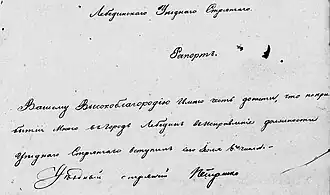 Лебединскаго Уѣзднаго Стряпчаго
Рапортъ.
Вашему Высокоблагородію Имѣю честь донести, что по при
бытіи Моемъ въ городъ Лебединъ въ исправленіе должности
Уѣзднаго Стряпчаго вступилъ сего
Уѣздный Стряпчій